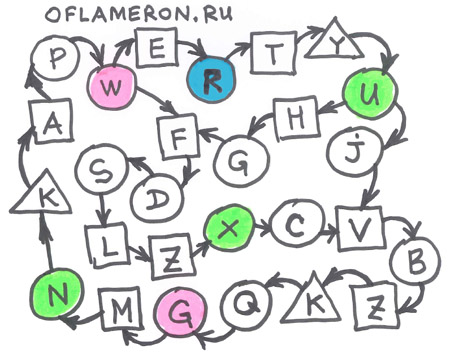 OFLAMERON.RU
P W E R T Y U
A F H j
S D G
K
L Z X C V
B
N M G Q K Z